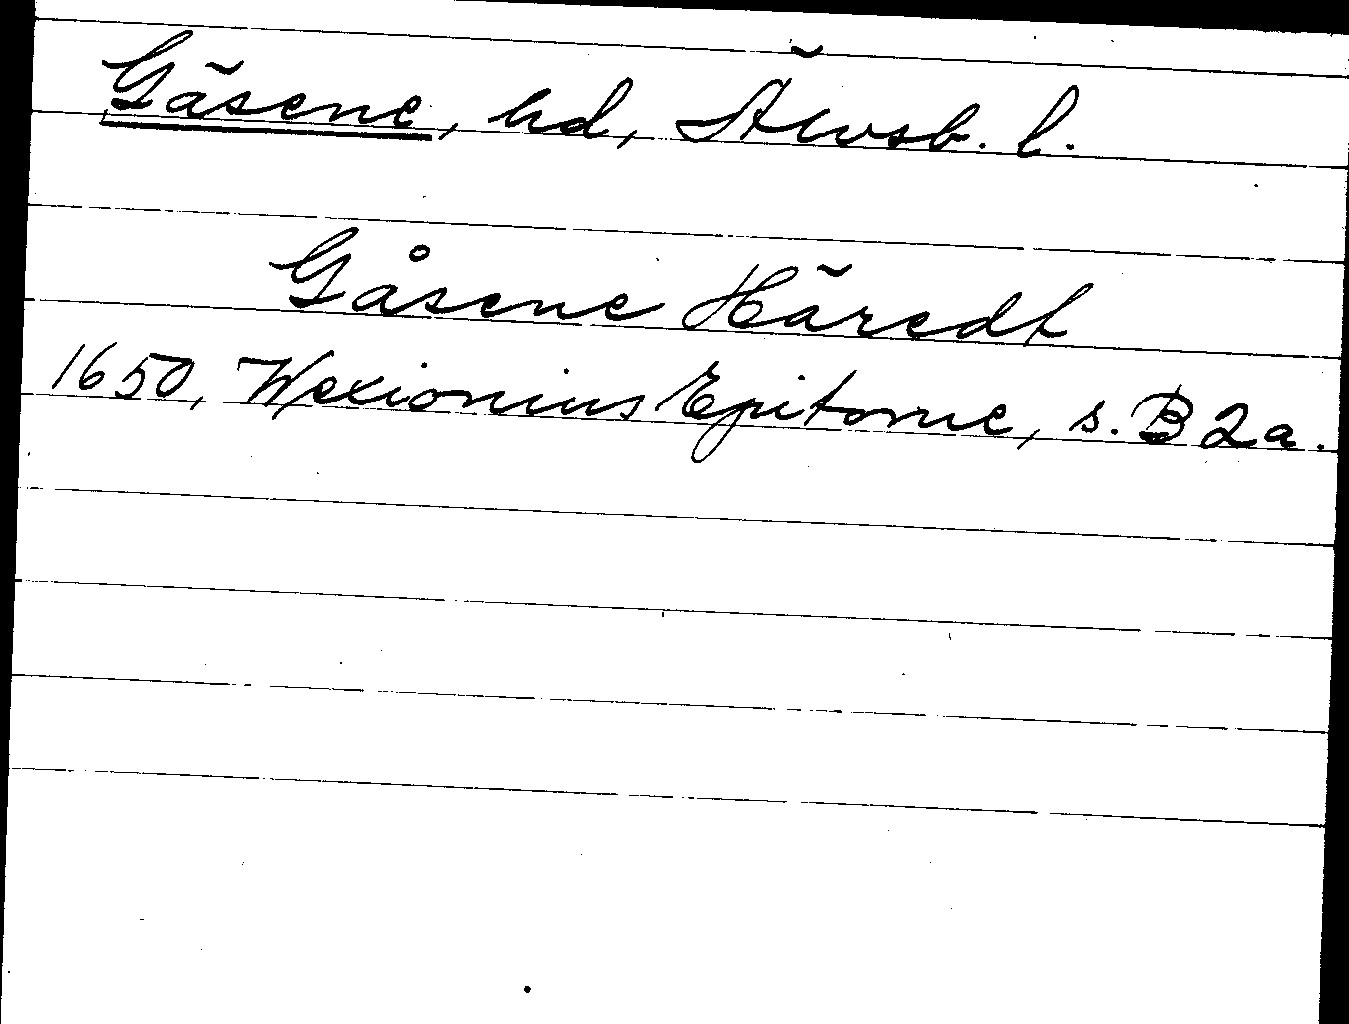 Gäsene, hd, Älvsb. l.
Gåsene Häredt
1650, Wexionius Epitome, s. B2a.